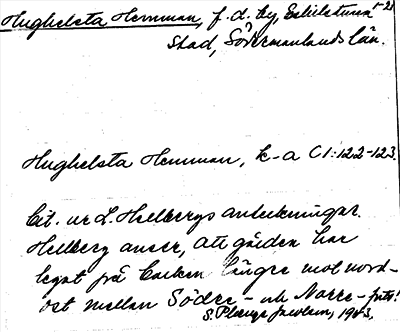 Hughelsta Hemman, f.d. by, Eskilstuna
stad, Södermanlands län.
Hughelsta Hemman, k-a C1:122-123.
Cit. ur L. Hellbergs anteckningar.
Hellberg anser, att gården har
legat på backen längre mot nord-
ost mellan Södre- och Norre-
S. Jacobson, 1943.